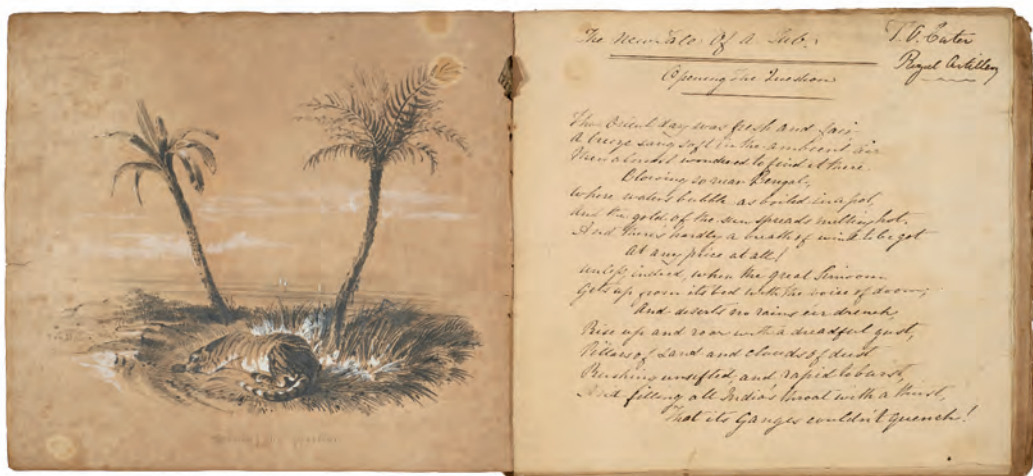 The New Tale Of a Tub.
T. O. Cater
Royal Artillery
Opening the Question
The Orient day was fresh and fair
A breeze sang soft in the ambient air
Men almost wondered to find it there
Blowing so near Bengal,
Where waters bubble as boiled in a pot,
and the gold of the sun spreads melting hot.
And there's hardly a breath of wind to be got
At any price at all!
unless, indeed, when the great Simoom
Gets up from its bed with the voice of doom;
And deserts no rains e'er drench,
Rise up and roar with a dreadful gust,
Pillars of Sand and clouds of dust
Rushing unsifted, and rapid to burst,
And filling all India's throat with a thirst,
That its Ganges couldn't quench!